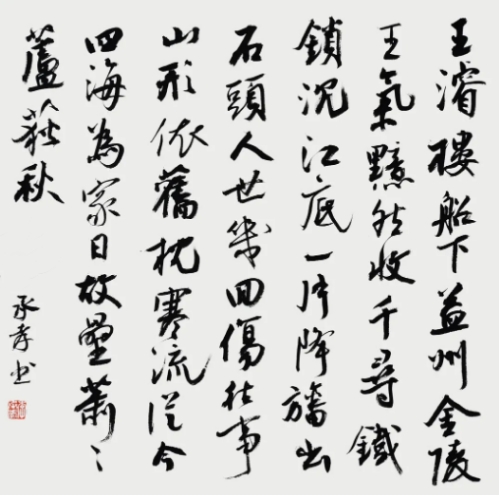 王濬樓船下益州金陵
王氣黯然收千尋鐵
鎖沉江底一片降旛出
石頭人世幾回傷往事
山形依舊枕寒流從今
四海為家日故壘蕭〻
蘆荻秋
承孝书